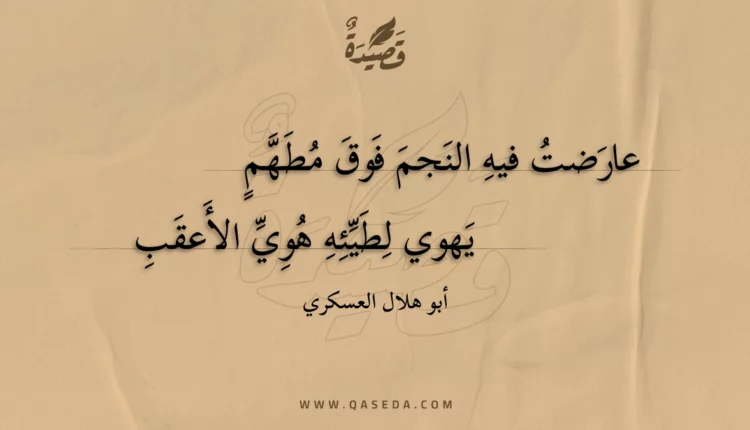 قَصِيْدَةٌ
عارَضتُ فيهِ النَجمَ فَوقَ مُطَهَّمٍ
يَهوي لِطَيِّئِهِ هُوِيِّ الأَعقَبِ
أبو هلال العسكري
WWW.QASEDA.COM